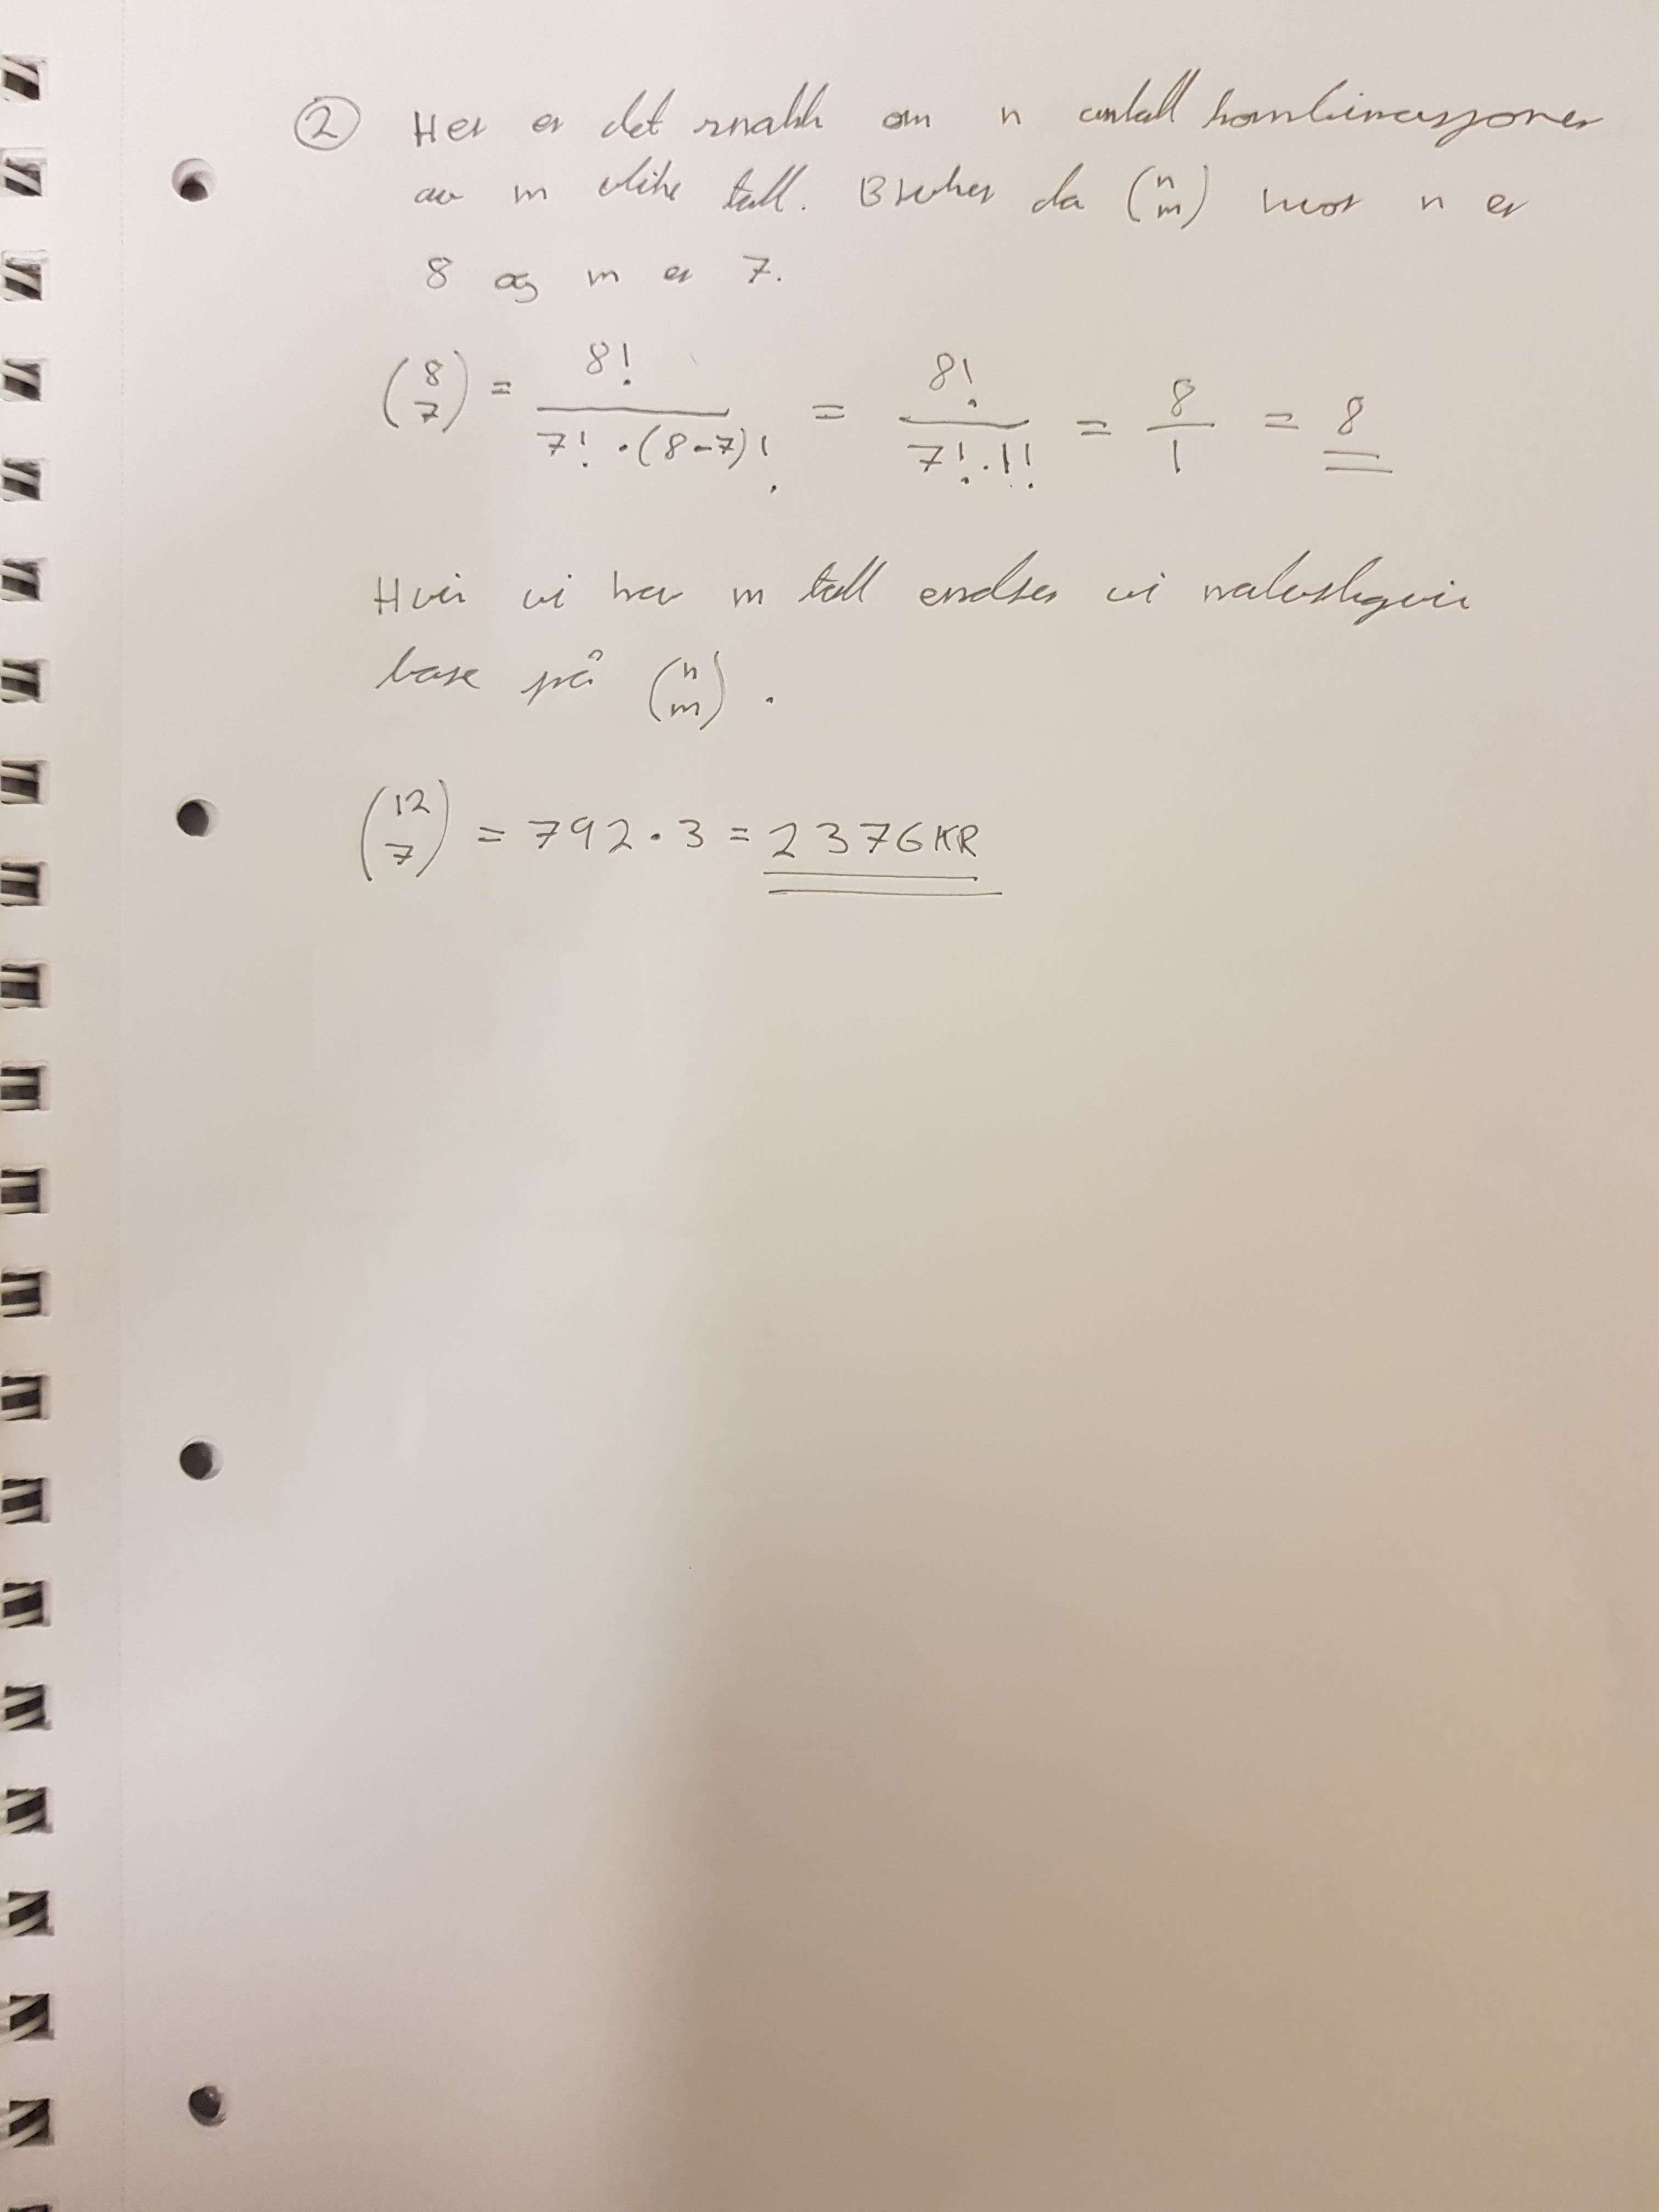 ② Her er det snakk om n antall kombinasjoner
av m ulike tall. Bruker da (n m) hvor n er
8 og m er 7.
(8 7) = 8! / 7! · (8-7)! = 8! / 7! · 1! = 8 / 1 = 8
Hvis vi har m tall endres vi naturligvis
base på (n m).
(12 7) = 792 · 3 = 2376 KR